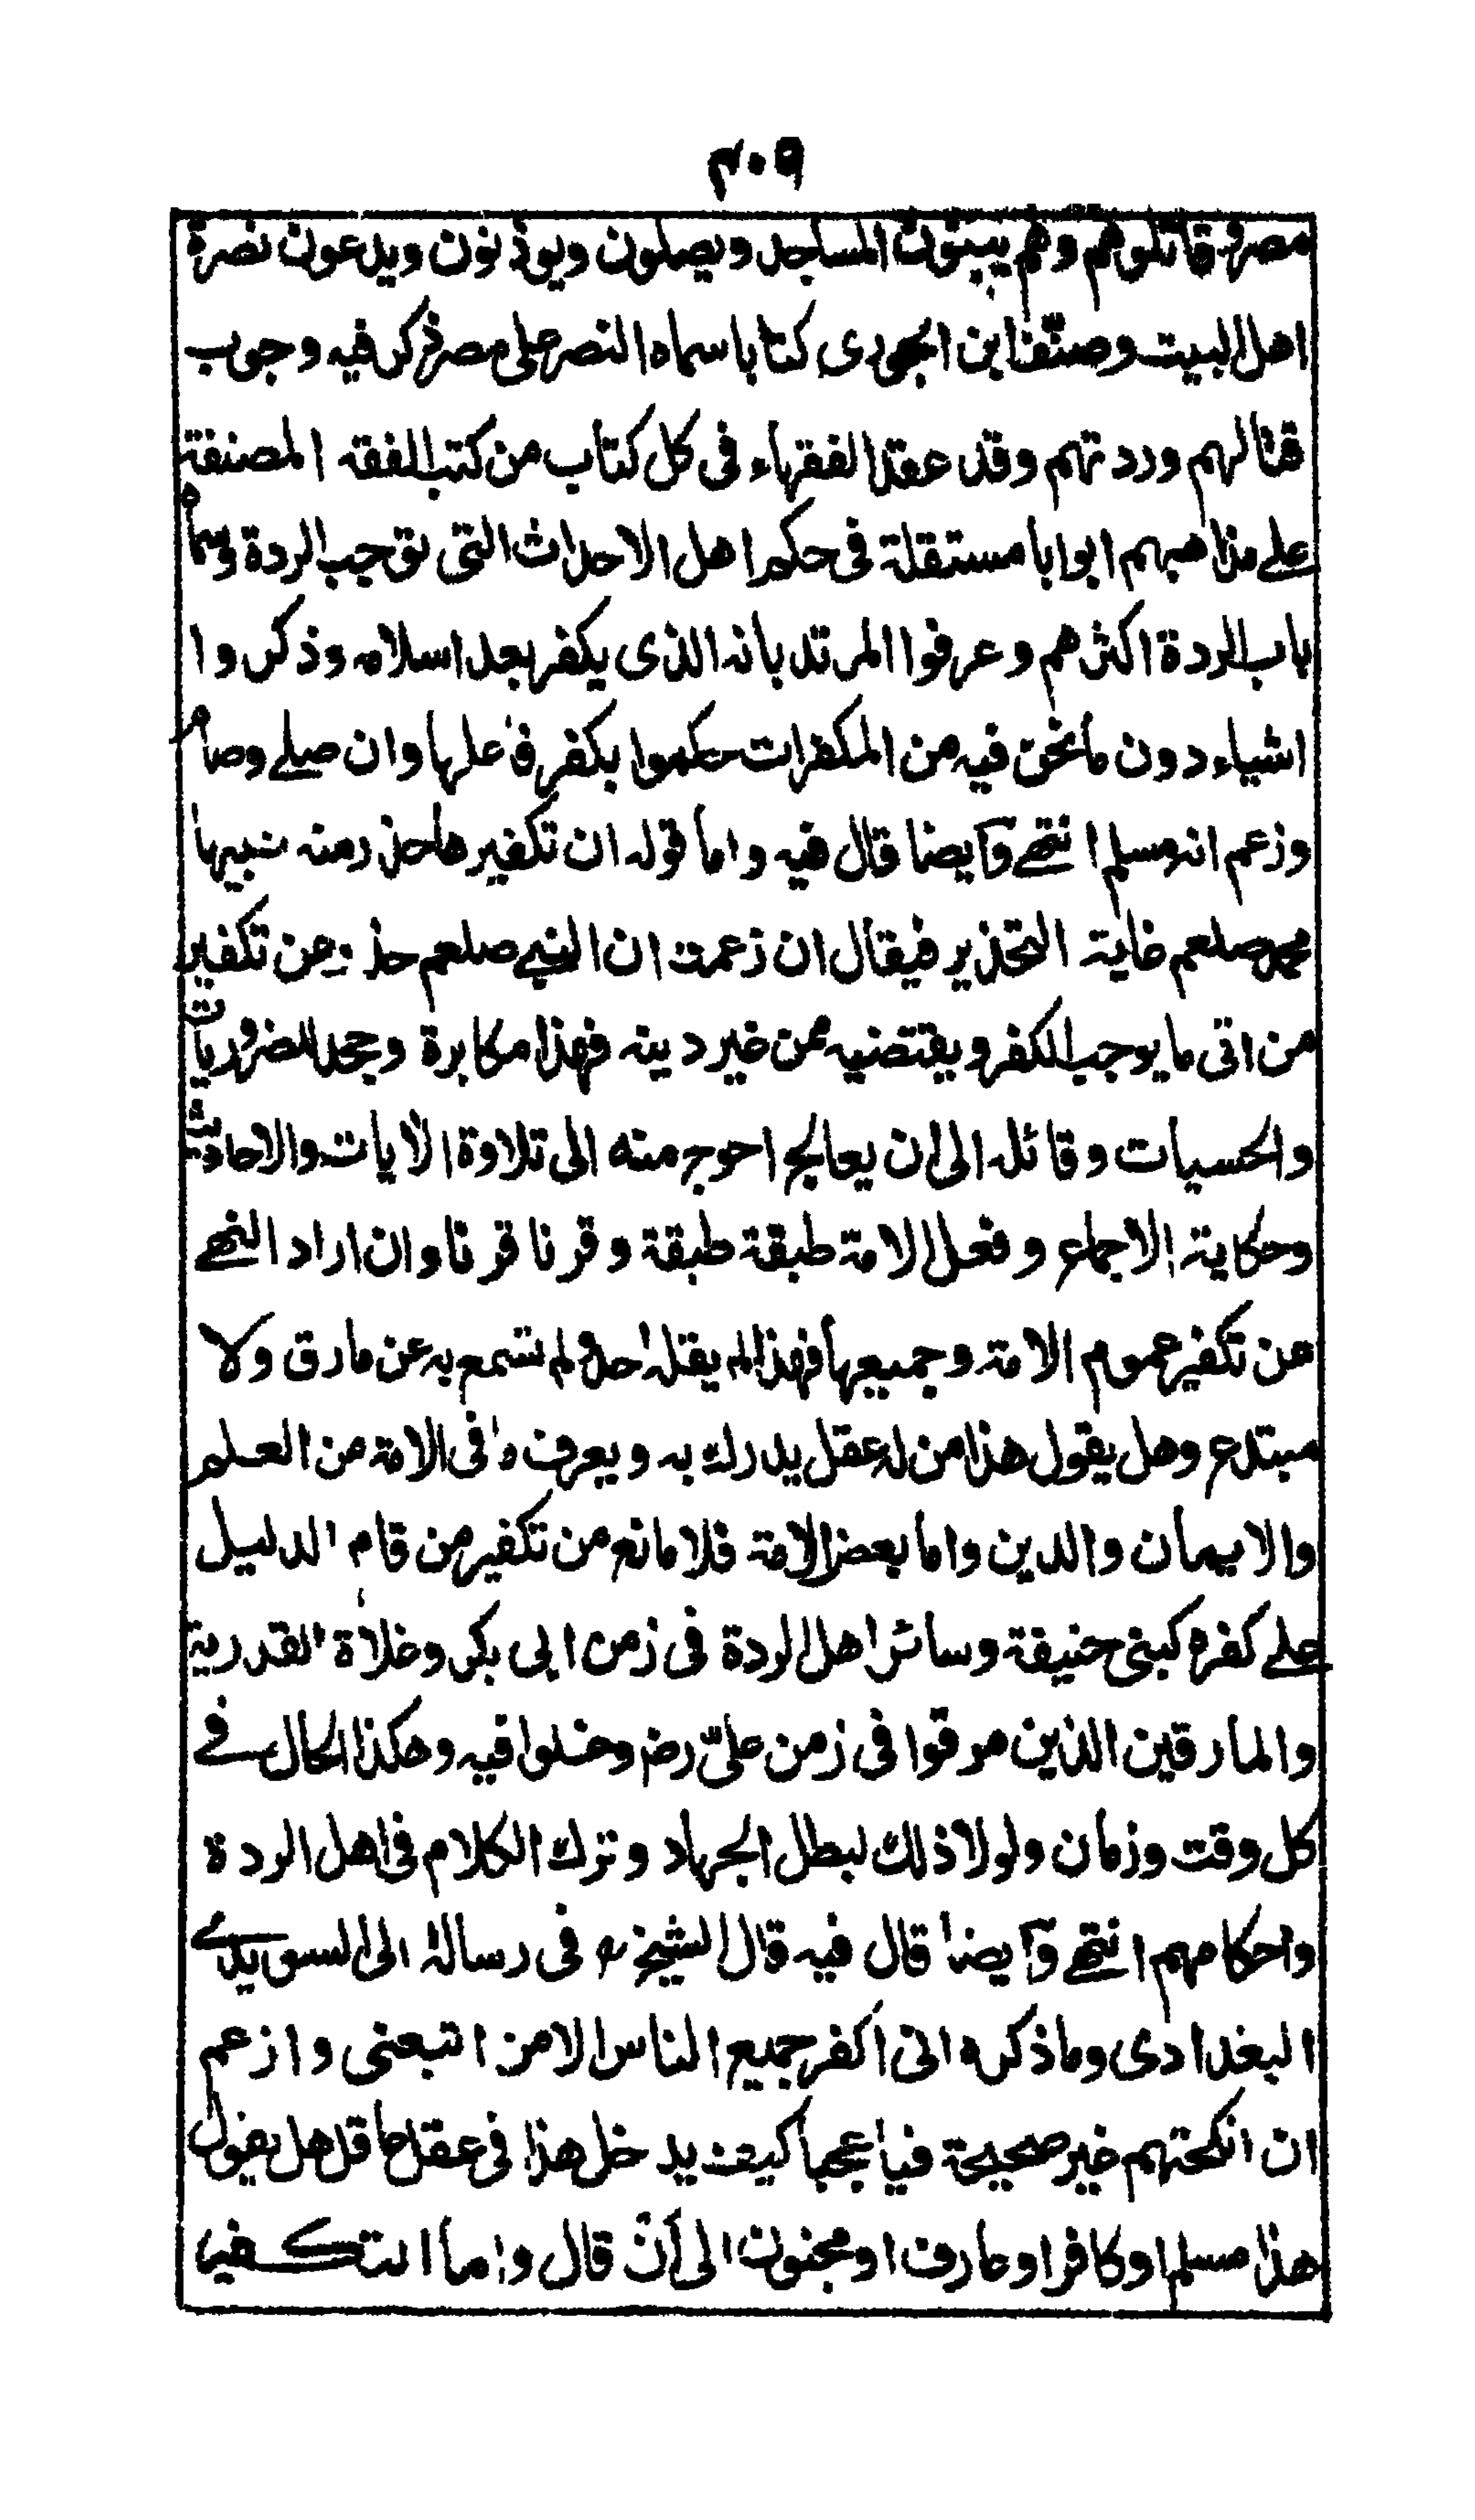 ٤٠٩
مصر فقاتلوهم وهم يبنون المساجد ويصلون ويوذنون ويدعون نصرة
اهل البيت وصنف ابن الجوزى كتابا سماه النصر على مصر ذكر فيه وجوب
قتالهم وردتهم وقد عقد الفقهاء فى كل كتاب من كتب الفقه المصنفة
على مذاهبهم ابوابا مستقلة فى حكم اهل الاحداث التى توجب الردة وسماه
باب الردة اكثرهم وعرفوا المرتد بانه الذى يكفر بعد اسلامه وذكروا
اشياء دون ما نحن فيه من المكفرات حكموا بكفر فاعلها وان صلى وصام
وزعم انه مسلم انتهى وايضا قال فيه واما قوله ان تكفيرها حذر منه نبيها
محمد صلعم غاية التحذير فيقال ان زعمت ان النبى صلعم حذر من تكفير
من اتى ما يوجب الكفر ويقتضيه من غير دينه فهذا مكابرة وجحد للضروريات
والحسيات وقائله الى ان يعالج احوج منه الى تلاوة الايات والاحاديث
وحكاية الاجماع وفعل الامة طبقة طبقة وقرنا قرنا وان اراد النهى
عن تكفير عموم الامة وجميعها فهذا لم يقله احد ولم نسمع به عن مارق ولا
مبتدع وهل يقول هذا من له عقل يدرك به ويعرف ما فى الامة من العلم
والايمان والدين واما بعض الامة فلا مانع من تكفير من قام الدليل
على كفره كبنى حنيفة وسائر اهل الردة فى زمن ابى بكر وغلاة القدرية
والمارقين الذين مرقوا فى زمن علىّ رض وغلوا فيه وهكذا الحال فى
كل وقت وزمان ولولا ذلك لبطل الجهاد وترك الكلام فى اهل الردة
واحكامهم انتهى وايضا قال فيه قال الشيخ ره فى رسالة الى السويدى
البغدادى وما ذكره انى اكفر جميع الناس الا من اتبعنى وازعم
ان انكحتهم غير صحيحة فيا عجبا كيف يدخل هذا فى عقل عاقل هل يقول
هذا مسلم او كافر او عارف او مجنون الى ان قال واما التكفير